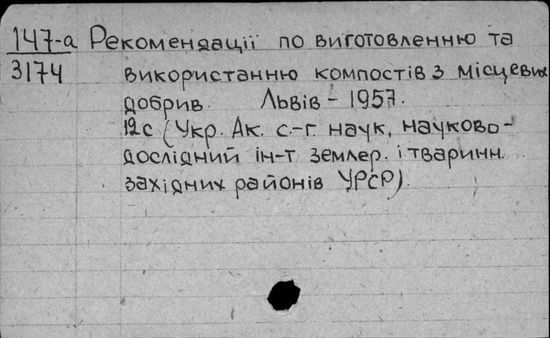 147-а Рекомендації по виготовленню та
3174 використанню компостів з місцевих
добрив. Львів - 1957.
12с (Укр. Ак. с.-г. наук, науково-
дослідний ін-т землер. і тваринн.
західних районів УРСР).